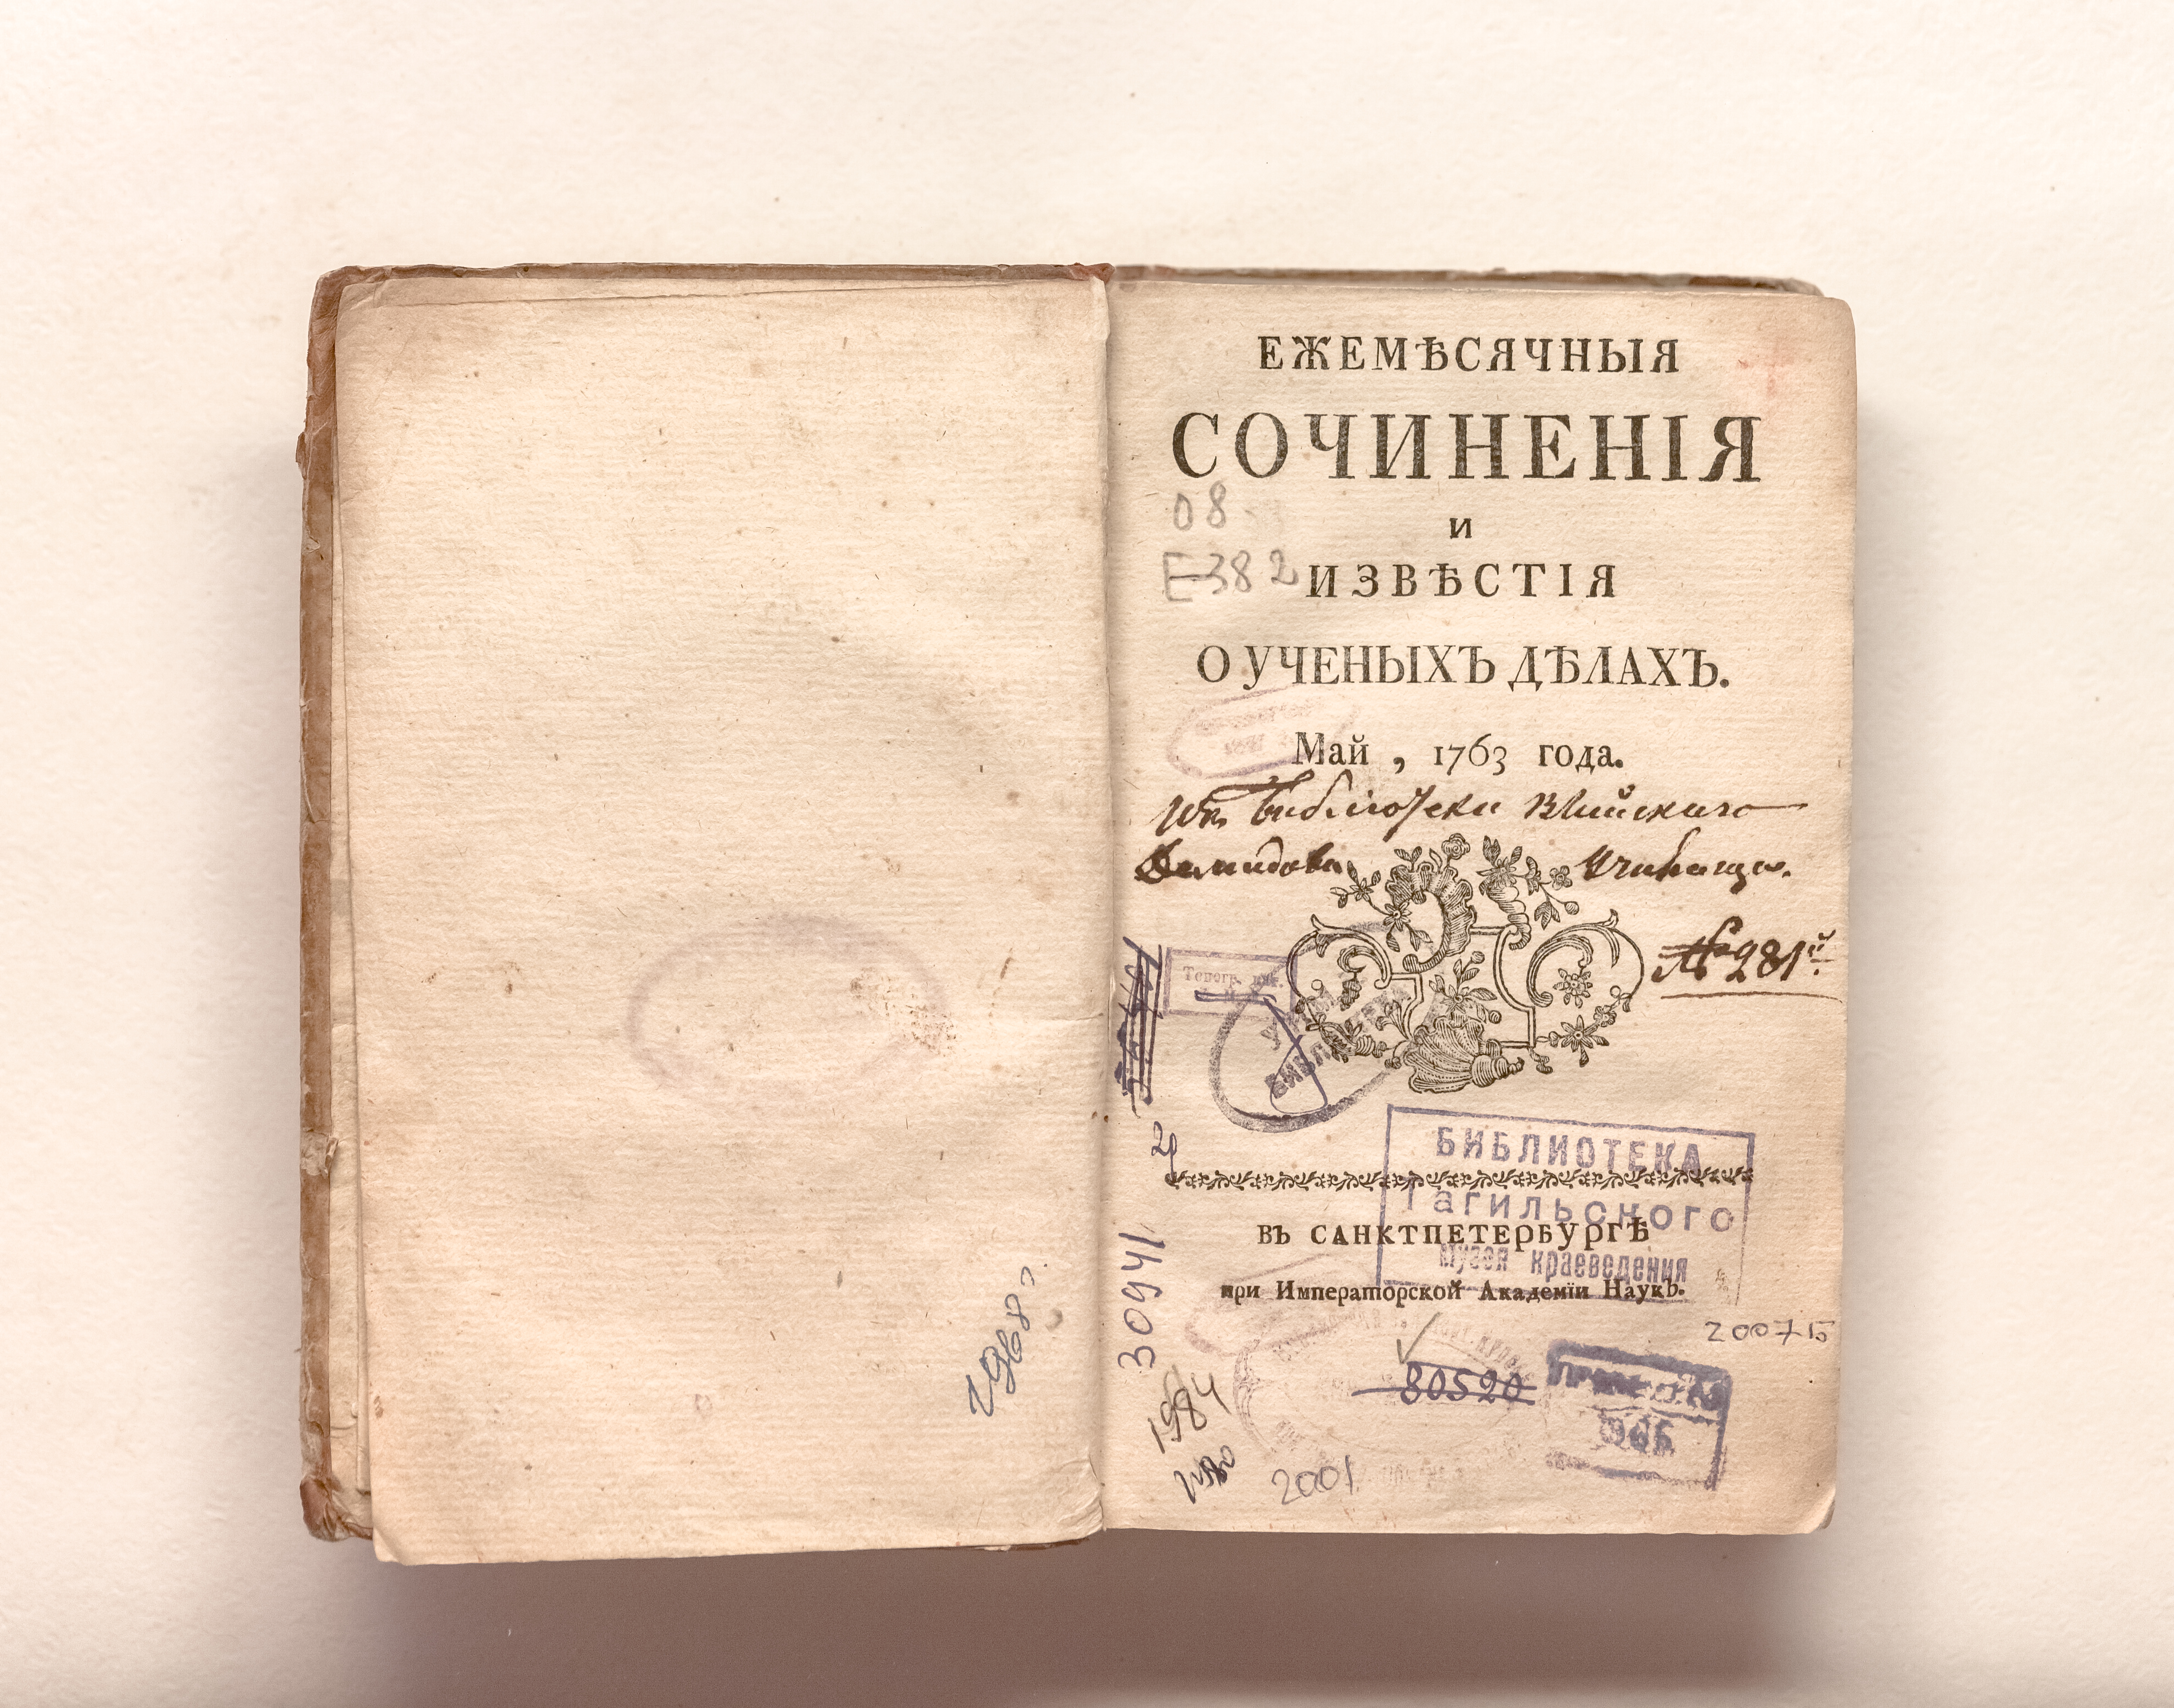 ЕЖЕМѢСЯЧНЫЯ
СОЧИНЕНІЯ
08
И
Е-382
ИЗВѢСТІЯ
О УЧЕНЫХЪ ДѢЛАХЪ.
Май , 1763 года.
Изъ Библіотеки Выйскаго
Демидова Училища.
№ 281й
БИБЛ
БИБЛИОТЕКА
Тагильского
музея краеведения
ВЪ САНКТПЕТЕРБУРГѢ
при Императорской Академїи Наукъ.
30941
200715
80520
1984
2001
1968 г.